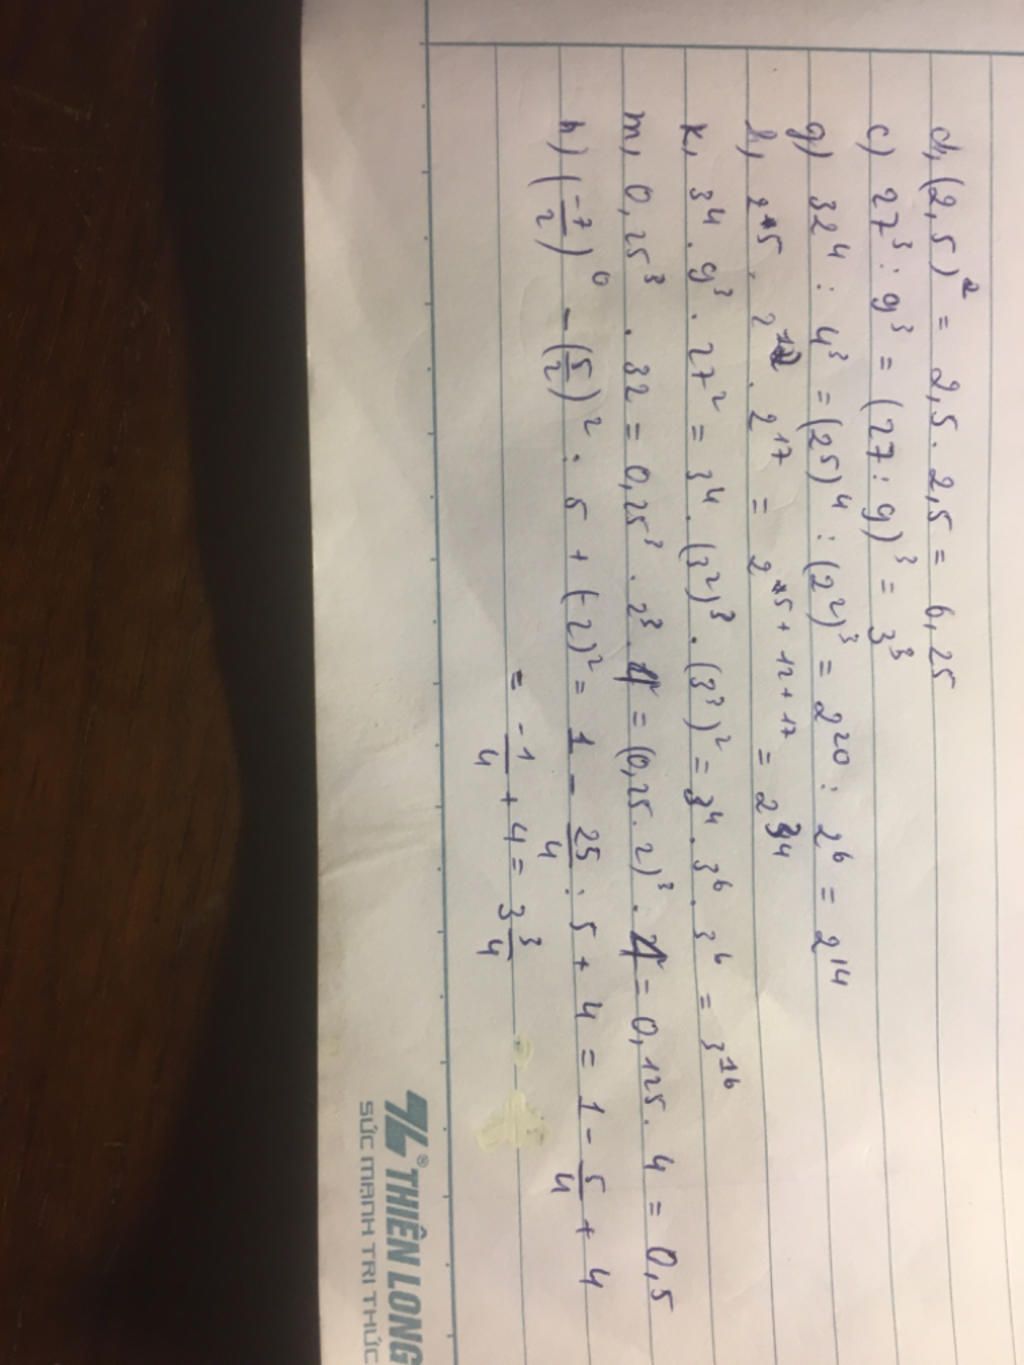 d, (2,5)² = 2,5 . 2,5 = 6,25
c) 27³ : 9³ = (27 : 9)³ = 3³
g) 32⁴ : 4³ = (25)⁴ : (2²)³ = 2²⁰ : 2⁶ = 2¹⁴
h, 2⁵ . 2¹² . 2¹⁷ = 2⁵⁺¹²⁺¹⁷ = 2³⁴
k, 3⁴ . 9³ . 27² = 3⁴ . (3²)³ . (3³)² = 3⁴ . 3⁶ . 3⁶ = 3¹⁶
m, 0,25³ . 32 = 0,25³ . 2³ . 4 = (0,25 . 2)³ . 4 = 0,125 . 4 = 0,5
n) (-7/2)⁰ - (5/2)² : 5 + (-2)² = 1 - 25/4 : 5 + 4 = 1 - 5/4 + 4
= -1/4 + 4 = 3 3/4
THIÊN LONG®
SỨC MẠNH TRI THỨC